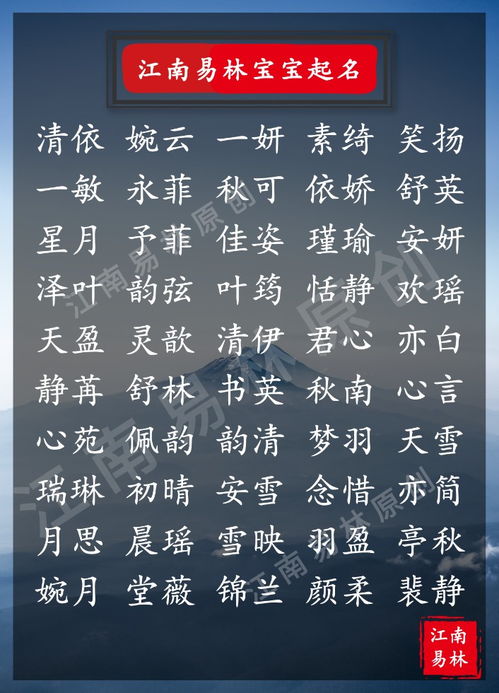 江南易林宝宝起名
清依 婉云 一妍 素绮 笑扬
一敏 永菲 秋可 依娇 舒英
星月 予菲 佳姿 瑾瑜 安妍
泽叶 韵弦 叶筠 恬静 欢瑶
天盈 灵歆 清伊 君心 亦白
静苒 舒林 书英 秋南 心言
心苑 佩韵 韵清 梦羽 天雪
瑞琳 初晴 安雪 念惜 亦简
月思 晨瑶 雪映 羽盈 亭秋
婉月 堂薇 锦兰 颜柔 裴静
江南易林原创
江南易林原创
江南易林原创
江南
易林